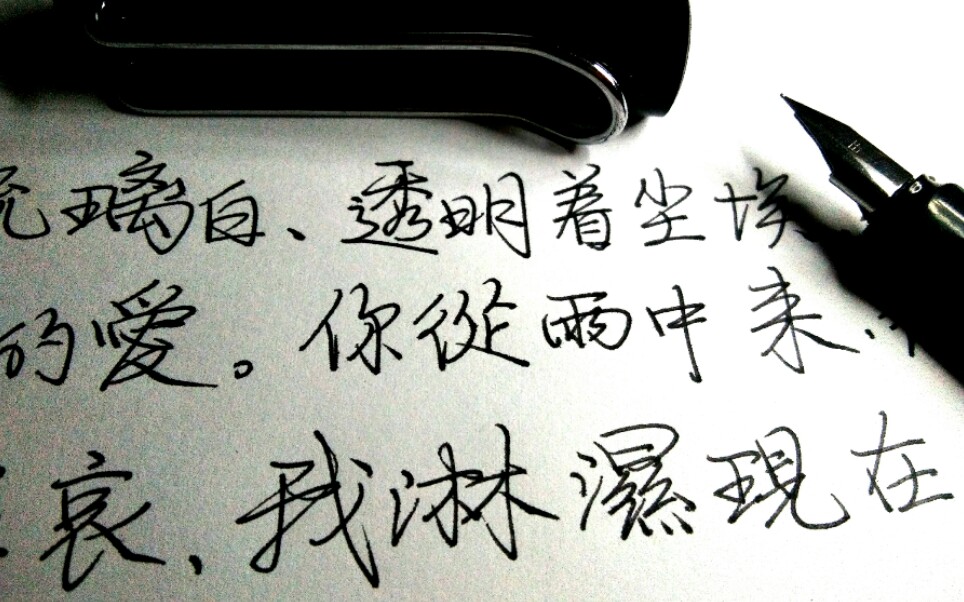 琉璃白、透明着尘埃
的愛。你從雨中来、
哀、我淋濕現在